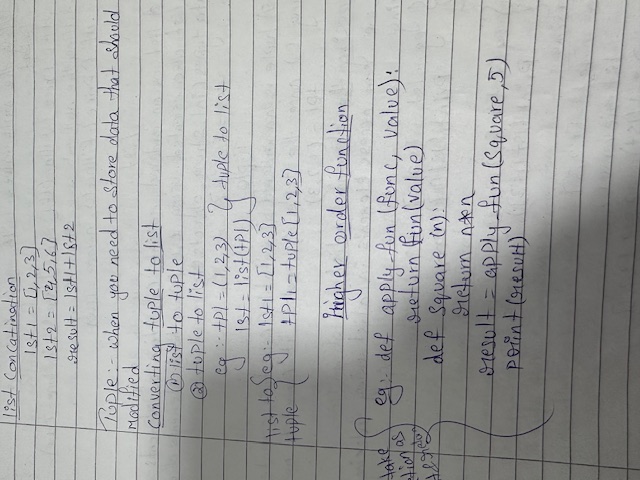 list Concatination
lst1 = [1,2,3]
lst2 = [4,5,6]
result = lst1+lst2
Tuple :- when you need to store data that should
modified
Converting tuple to list
① list to tuple
② tuple to list
eg :- tpl = (1,2,3) } tuple to list
lst = list(tpl)
list to { eg:- lst1 = [1,2,3]
tuple tpl1 = tuple[1,2,3]
Higher order function
eg:- def apply_fun (func, value):
take return fun(value)
as def square (n):
return n*n
result = apply_fun(square,5)
print(result)